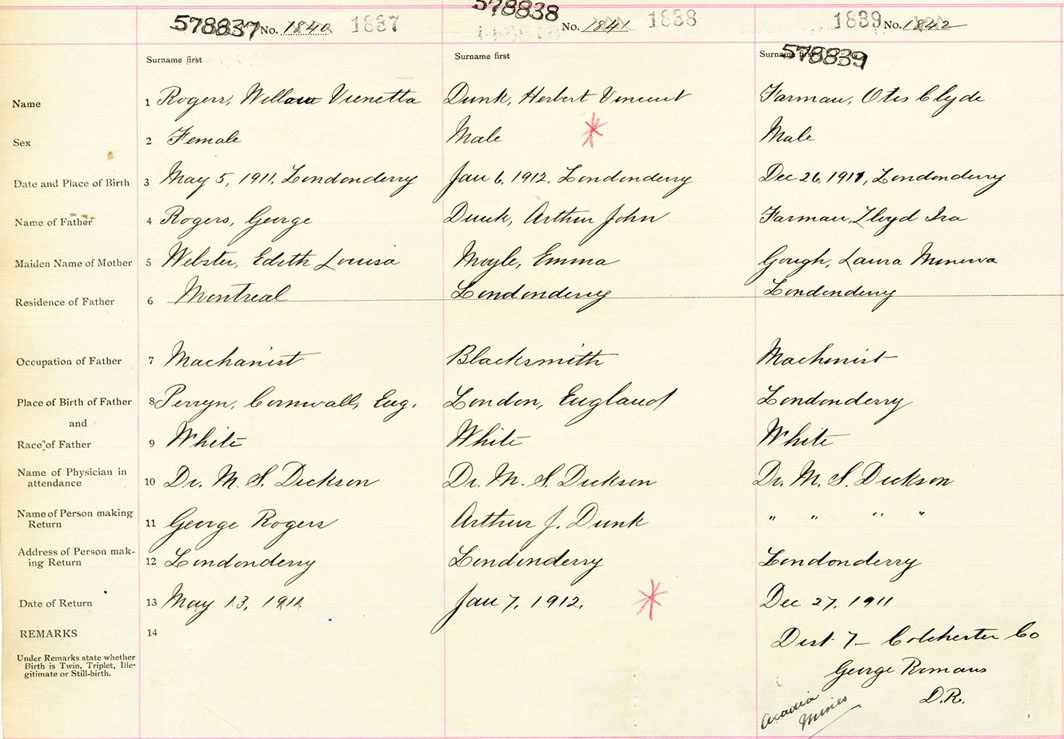 578837 No. 1840 1837
578838 No. 1841 1838
1839 No. 1842
578839
Surname first Surname first Surname first
Name 1 Rogers, Willow Vienetta Dunk, Herbert Vincent Farman, Otis Clyde
Sex 2 Female Male Male
Date and Place of Birth 3 May 5, 1911, Londonderry Jan 6, 1912, Londonderry Dec 26, 1911, Londonderry
Name of Father 4 Rogers, George Dunk, Arthur John Farman, Lloyd Ira
Maiden Name of Mother 5 Webster, Edith Louisa Moyle, Emma Gough, Laura Minerva
Residence of Father 6 Montreal Londonderry Londonderry
Occupation of Father 7 Machanist Blacksmith Machinist
Place of Birth of Father 8 Perryn, Cornwall, Eng. London, England Londonderry
and
Race of Father 9 White White White
Name of Physician in
attendance 10 Dr. M. S. Dickson Dr. M. S. Dickson Dr. M. S. Dickson
Name of Person making
Return 11 George Rogers Arthur J. Dunk " " " "
Address of Person mak-
ing Return 12 Londonderry Londonderry Londonderry
Date of Return 13 May 13, 1911 Jan 7, 1912. Dec 27, 1911
REMARKS 14 Dist 7 - Colchester Co
Under Remarks state whether
Birth is Twin, Triplet, Ille-
gitimate or Still-birth.
George Romans
D.R.
Acadia
Mines